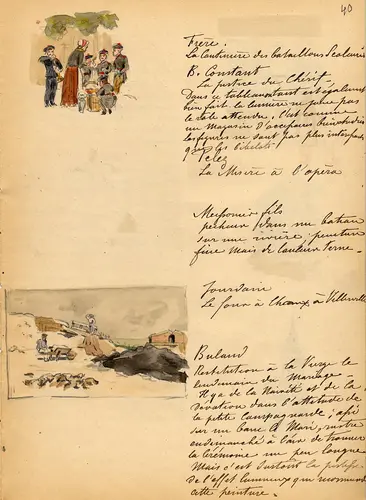 40
Frère.
La Cantinière des bataillons Scolaires
B. Constant
La justice du Chérif
Dans ce tableau tout est également
bien fait la lumière ne joue pas
le rôle attendu. C'est comme
un magasin d'accessoires bien
les figures ne sont pas plus
que les bibelots
Pelez
La Misère à l'opéra
Meissonier fils
pecheur dans un bateau
sur une rivière, peinture
fine mais de couleur terne.
Jourdain
Le four à Chaux, à Villerville
Buland
Restitution à la Vierge le
lendemain du Mariage
Il y a de la Naïveté et de la
dévotion dans l'attitude de
la petite Campagnarde; assis
sur un banc le Mari, 
endimanché à l'air de trouver
la Cérémonie un peu longue
Mais c'est surtout la
de l'effet lumineux que
cette peinture.